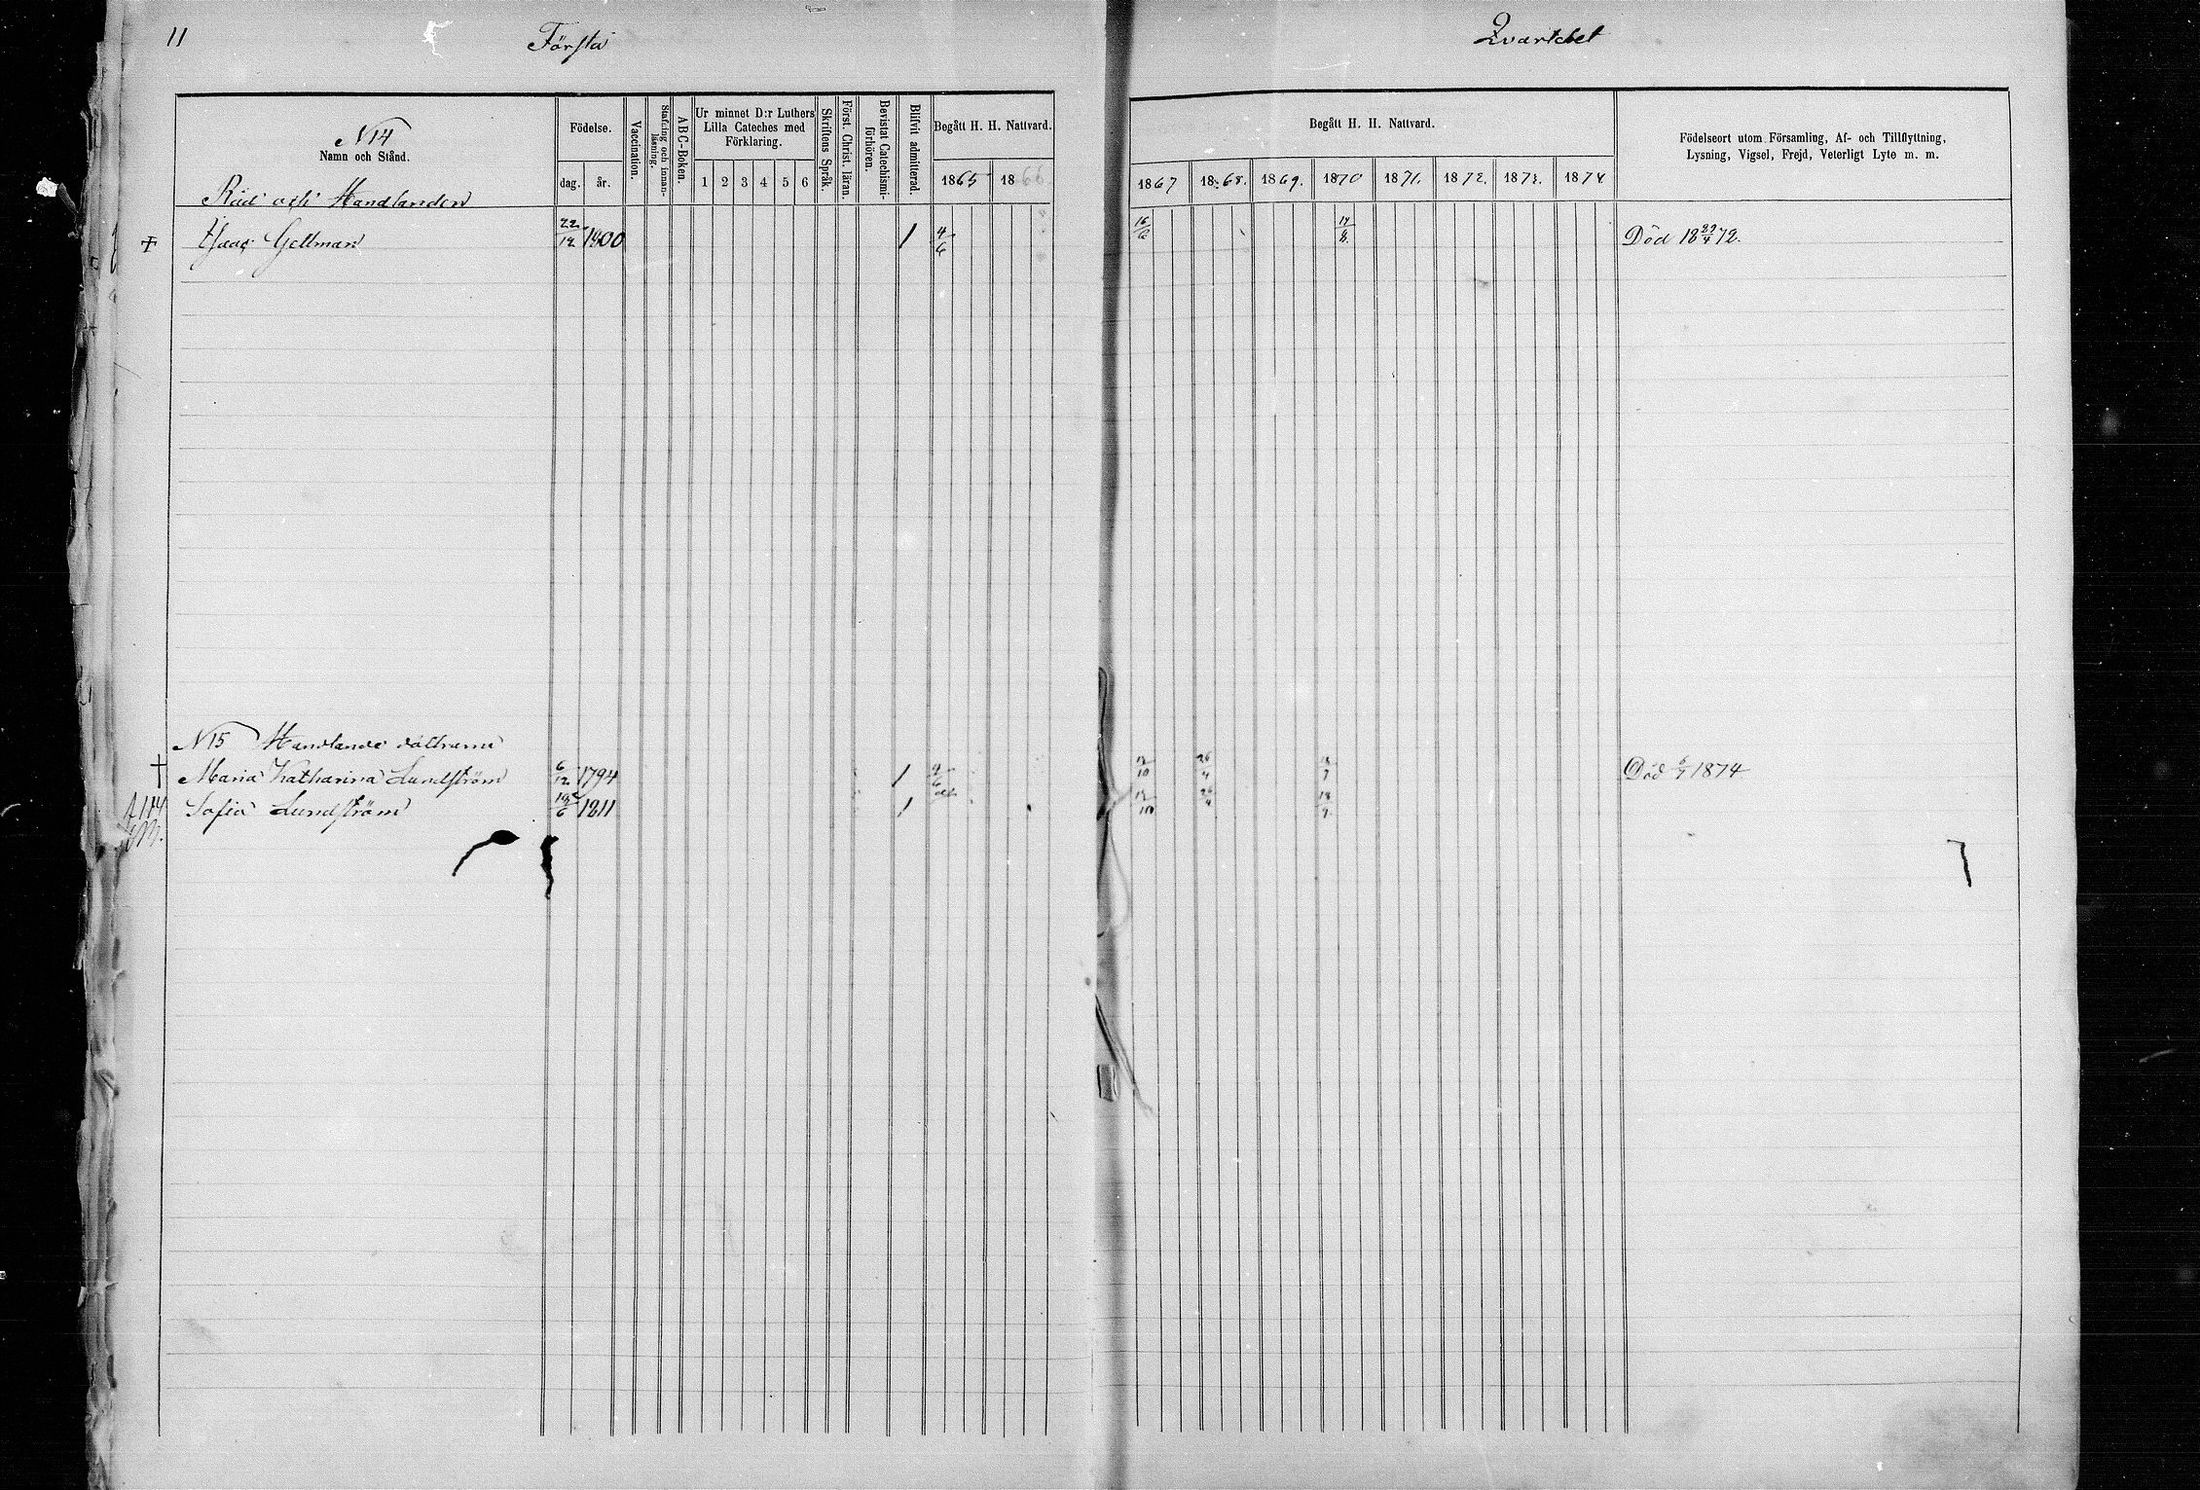 11 Första Qvarteret
N 14
Namn och Stånd.
Födelse.
dag. år.
Vaccination.
Stafning och innan-läsning.
ABC-Boken.
Ur minnet D:r Luthers
Lilla Cateches med
Förklaring.
1 2 3 4 5 6
Skriftens Språk.
Först. Christ. läran.
Bevistat Catechismi-förhören.
Blifvit admitterad.
Begått H. H. Nattvard.
1865 1866
Begått H. H. Nattvard.
1867 1868. 1869. 1870 1871. 1872. 1873. 1874
Födelseort utom Församling, Af- och Tillflyttning,
Lysning, Vigsel, Frejd, Veterligt Lyte m. m.
Råd och Handlanden
Isaac Gellman 22/12 1800 1 4/6 16/6 Död 18 29/4 72.
N 15 Handlande döttrarne
Maria Katharina Lundström 6/12 1794 1 12/10 26/4 Död 6/7 1874
Sofia Lundström 1811 1 12/10 26/4